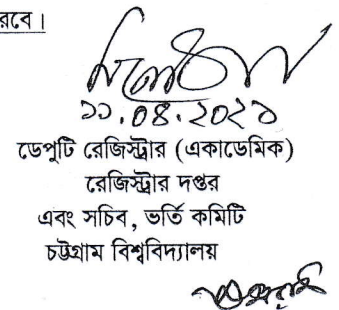 রবে।
১১.০৪.২০২১
ডেপুটি রেজিস্ট্রার (একাডেমিক)
রেজিস্ট্রার দপ্তর
এবং সচিব, ভর্তি কমিটি
চট্টগ্রাম বিশ্ববিদ্যালয়